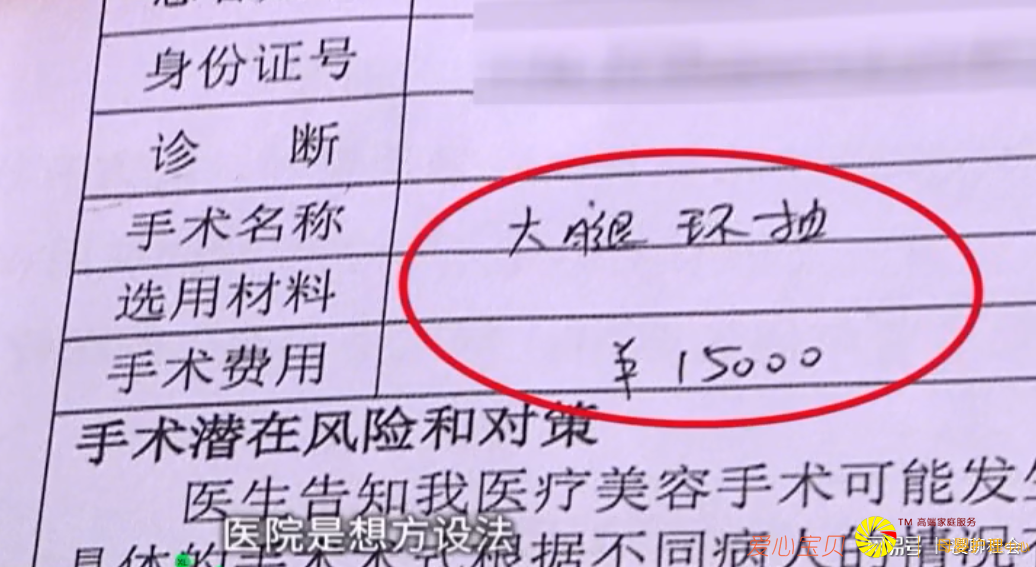 身份证号
诊 断
手术名称 大腿 环抽
选用材料
手术费用 ¥15000
手术潜在风险和对策
医生告知我医疗美容手术可能发生
具体的手术术式根据不同病人的情况
医院是想方设法
爱心宝贝
TM 高端家庭服务
号
漫聊社会